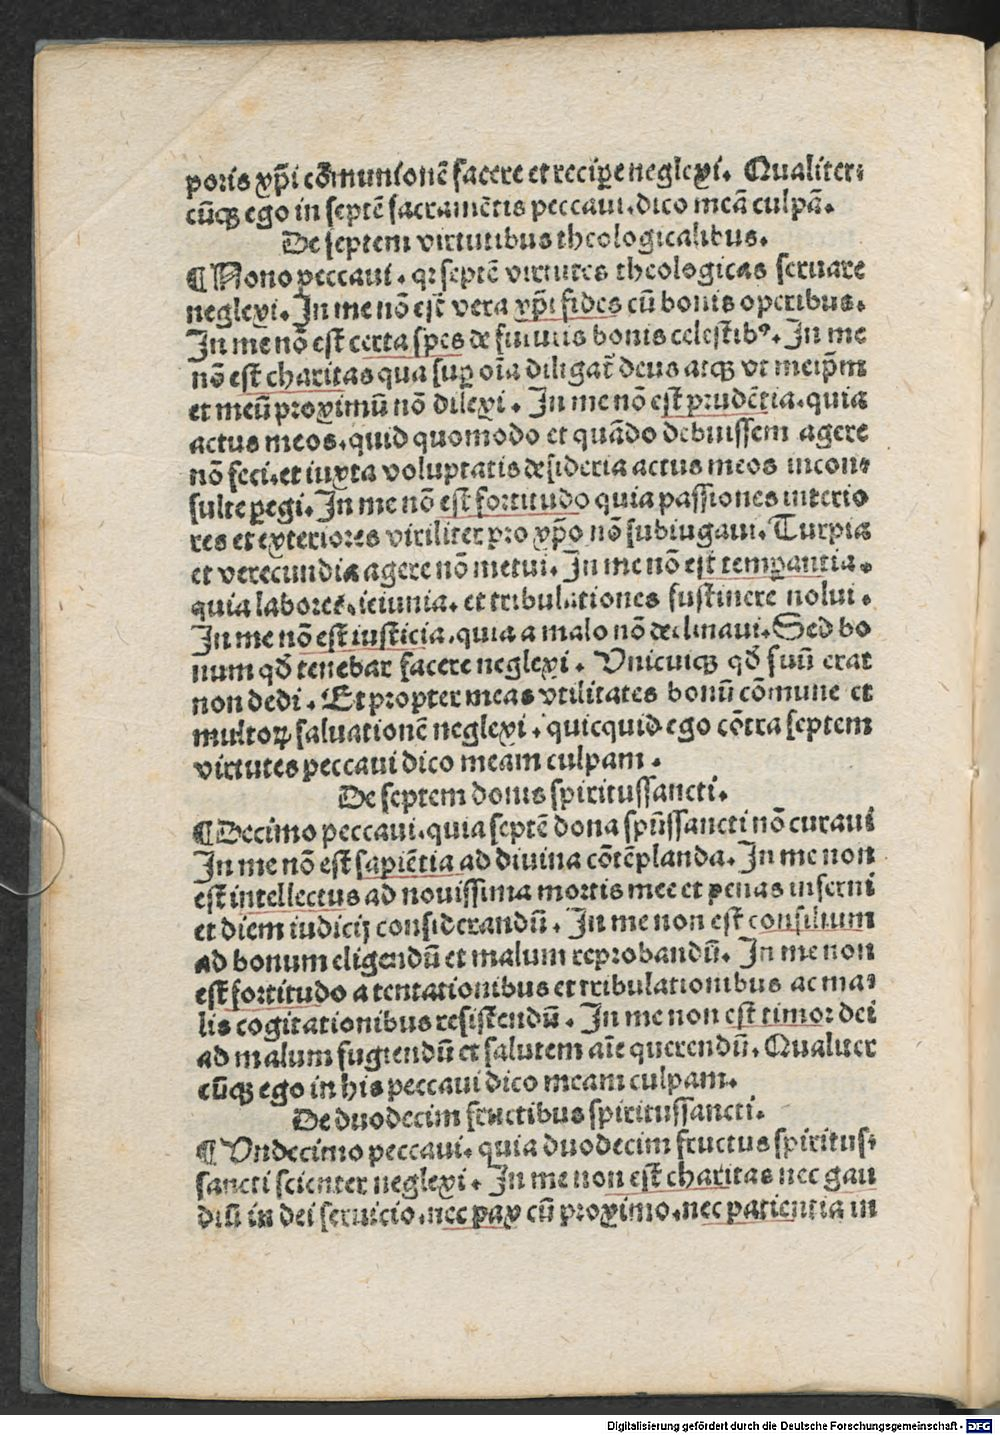 poris xp̃i cõmunionẽ facere et recip̲e neglexi. Qualiter⸗
cũqꝫ ego in septẽ sacramẽtis peccaui. dico meã culpã.
De septem virtutibus theologicalibus.
¶ Nono peccaui. qꝛ septẽ virtutes theologicas seruare
neglexi. In me nõ est vera xp̃i fides cũ bonis operibus.
In me nõ est certa spes de futuris bonis celestibꝰ. In me
nõ est charitas qua sup̲ oĩa diligat̃ deus atqꝫ vt meip̃m
et meũ proximũ nõ dilexi. In me nõ est prudẽtia. quia
actus meos. quid quomodo et quãdo debuissem agere
nõ feci. et iuxta voluptatis desideria actus meos incon⸗
sulte p̲egi. In me nõ est fortitudo quia passiones interio
res et exteriores viriliter pro xp̃o nõ subiugaui. Turpia
et verecundia agere nõ metui. In me nõ est temp̲antia.
quia labores. ieiunia. et tribulationes sustinere nolui.
In me nõ est iusticia. quia a malo nõ declinaui. Sed bo
num qð tenebar facere neglexi. Vnicuiqꝫ qð suũ erat
non dedi. Et propter meas vtilitates bonũ cõmune et
multoꝝ saluationẽ neglexi. quicquid ego cõtra septem
virtutes peccaui dico meam culpam.
De septem donis spiritussancti.
¶ Decimo peccaui. quia septẽ dona spũssancti nõ curaui
In me nõ est sapiẽtia ad diuina cõtẽplanda. In me non
est intellectus ad nouissima mortis mee et penas inferni
et diem iudicij considerandũ. In me non est consilium
ad bonum eligendũ et malum reprobandũ. In me non
est fortitudo a tentationibus et tribulationibus ac ma⸗
lis cogitationibus resistendũ. In me non est timor dei
ad malum fugiendũ et salutem aĩe querendũ. Qualiter
cũqꝫ ego in his peccaui dico meam culpam.
De duodecim fructibus spiritussancti.
¶ Vndecimo peccaui. quia duodecim fructus spiritus⸗
sancti scienter neglexi. In me non est charitas nec gau
diũ in dei seruicio. nec pax cũ proximo. nec patientia in
Digitalisierung gefördert durch die Deutsche Forschungsgemeinschaft - DFG